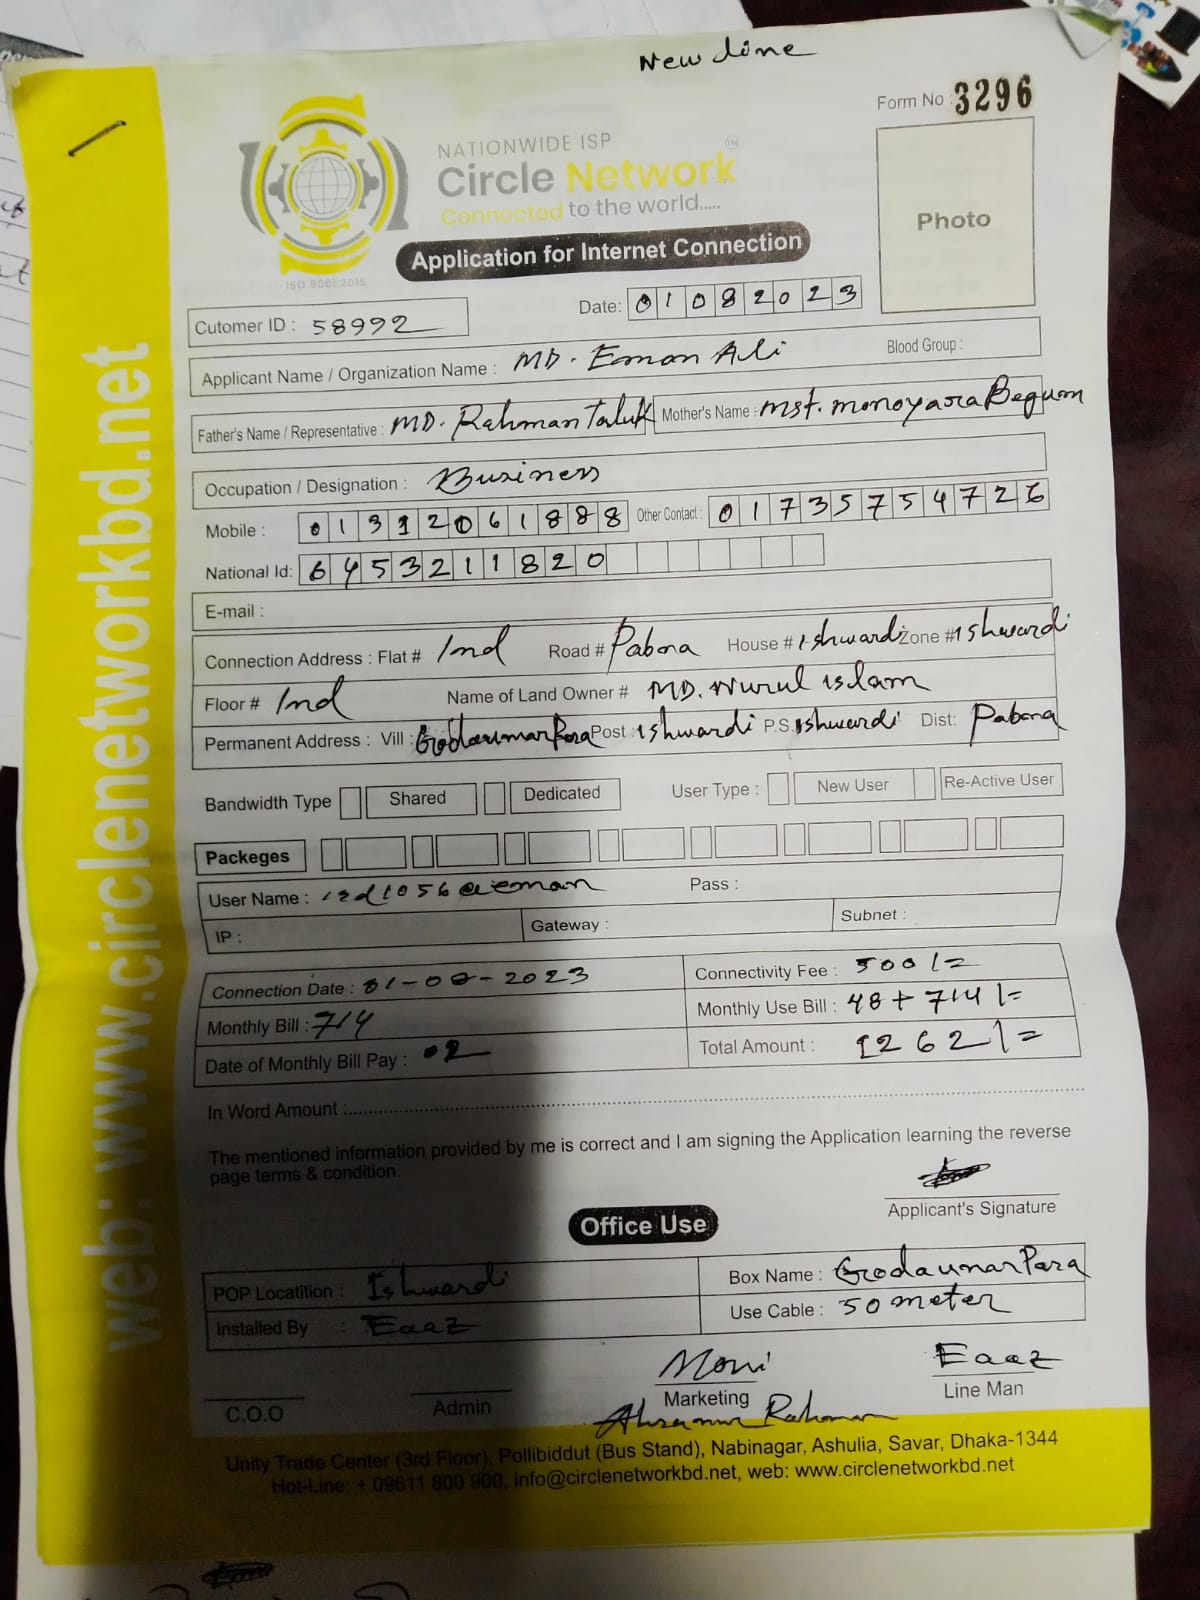 New line
Form No 3296
NATIONWIDE ISP
Circle Network
Connected to the world.....
ISO 9001:2015
Photo
Application for Internet Connection
Date: 01082023
Cutomer ID : 58992
Applicant Name / Organization Name : MD. Eman Ali Blood Group :
Father's Name / Representative : MD. Rahman Taluk Mother's Name : Mst. Monoyara Begum
Occupation / Designation : Business
Mobile : 01312061888 Other Contact : 01735754726
National Id: 6453211820
E-mail :
Connection Address : Flat # Ind Road # Pabna House # Ishwardi Zone # Ishwardi
Floor # Ind Name of Land Owner # MD. Nurul islam
Permanent Address : Vill : Post : Ishwardi P.S. Ishwardi Dist: Pabna
Bandwidth Type Shared Dedicated User Type : New User Re-Active User
Packeges
User Name : ird1056@eman Pass :
IP : Gateway : Subnet :
Connection Date : 01-08-2023 Connectivity Fee : 500/=
Monthly Bill : 714 Monthly Use Bill : 48+714/=
Date of Monthly Bill Pay : 02 Total Amount : 1262/=
In Word Amount :
The mentioned information provided by me is correct and I am signing the Application learning the reverse
page terms & condition.
Applicant's Signature
Office Use
POP Locatition : Ishwardi Box Name : GrodaumarPara
Installed By : Eaaz Use Cable : 50 meter
Moni Eaaz
C.O.O Admin Marketing Line Man
Rahman
Unity Trade Center (3rd Floor), Pollibiddut (Bus Stand), Nabinagar, Ashulia, Savar, Dhaka-1344
Hot-Line: + 09611 800 900, info@circlenetworkbd.net, web: www.circlenetworkbd.net
web: www.circlenetworkbd.net